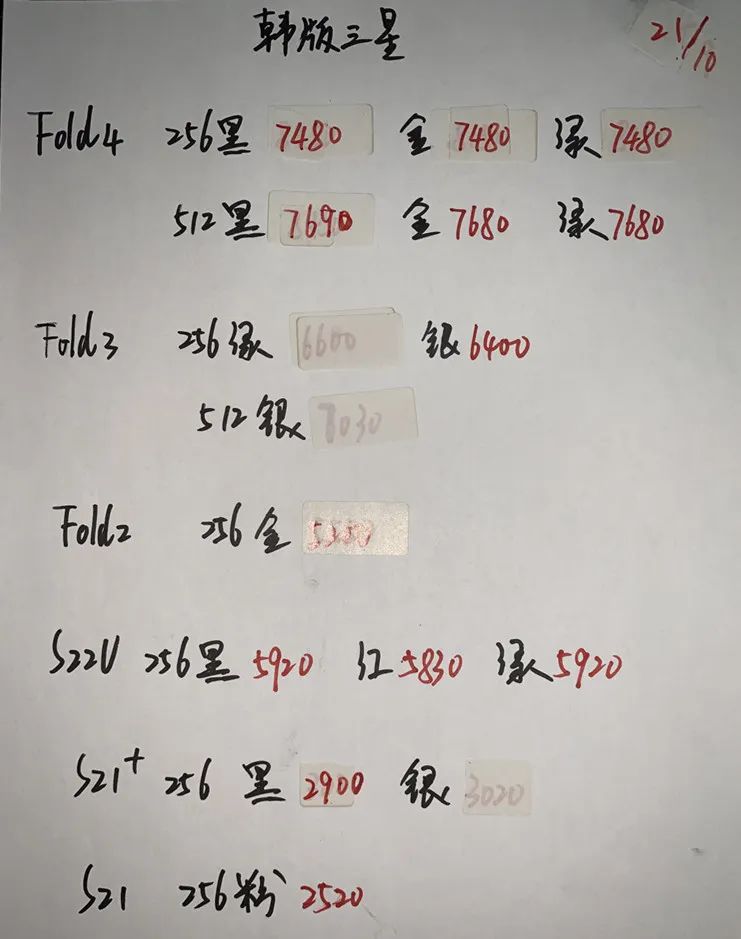 韩版三星 21/10
Fold4 256黑 7480 金 7480 绿 7480
512黑 7690 金 7680 绿 7680
Fold3 256绿 6600 银 6400
512银
Fold2 256金
S22U 256黑 5920 红 5830 绿 5920
S21+ 256 黑 2900 银 3020
S21 256粉 2520